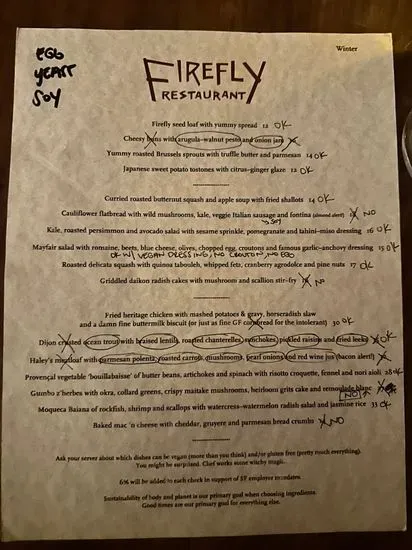 Winter
EGG
YEAST
SOY
FIREFLY
RESTAURANT
Firefly seed loaf with yummy spread 12 OK
Cheesy buns with arugula–walnut pesto and onion jam
Yummy roasted Brussels sprouts with truffle butter and parmesan 14 OK
Japanese sweet potato tostones with citrus–ginger glaze 12 OK
Curried roasted butternut squash and apple soup with fried shallots 14 OK
Cauliflower flatbread with wild mushrooms, kale, veggie Italian sausage and fontina (almond alert) NO
SOY
Kale, roasted persimmon and avocado salad with sesame sprinkle, pomegranate and tahini–miso dressing 16 OK
Mayfair salad with romaine, beets, blue cheese, olives, chopped egg, croutons and famous garlic–anchovy dressing 15 OK
OK W/ VEGAN DRESSING, NO CROUTON, NO EGG
Roasted delicata squash with quinoa tabouleh, whipped feta, cranberry agrodolce and pine nuts 17 OK
Griddled daikon radish cakes with mushroom and scallion stir–fry NO
Fried heritage chicken with mashed potatoes & gravy, horseradish slaw
and a damn fine buttermilk biscuit (or just as fine GF cornbread for the intolerant) 30 OK
Dijon crusted ocean trout with braised lentils, roasted chanterelles, sunchokes, pickled raisins and fried leeks
Haley's meatloaf with parmesan polenta, roasted carrots, mushrooms, pearl onions and red wine jus (bacon alert!)
Provençal vegetable 'bouillabaisse' of butter beans, artichokes and spinach with risotto croquette, fennel and nori aioli 28 OK
Gumbo z'herbes with okra, collard greens, crispy maitake mushrooms, heirloom grits cake and remoulade blanc
NO
Moqueca Baiana of rockfish, shrimp and scallops with watercress–watermelon radish salad and jasmine rice 33 OK
Baked mac 'n cheese with cheddar, gruyere and parmesan bread crumbs NO
Ask your server about which dishes can be vegan (more than you think) and/or gluten free (pretty much everything).
You might be surprised. Chef works some witchy magic.
6% will be added to each check in support of SF employer mandates.
Sustainability of body and planet is our primary goal when choosing ingredients.
Good times are our primary goal for everything else.